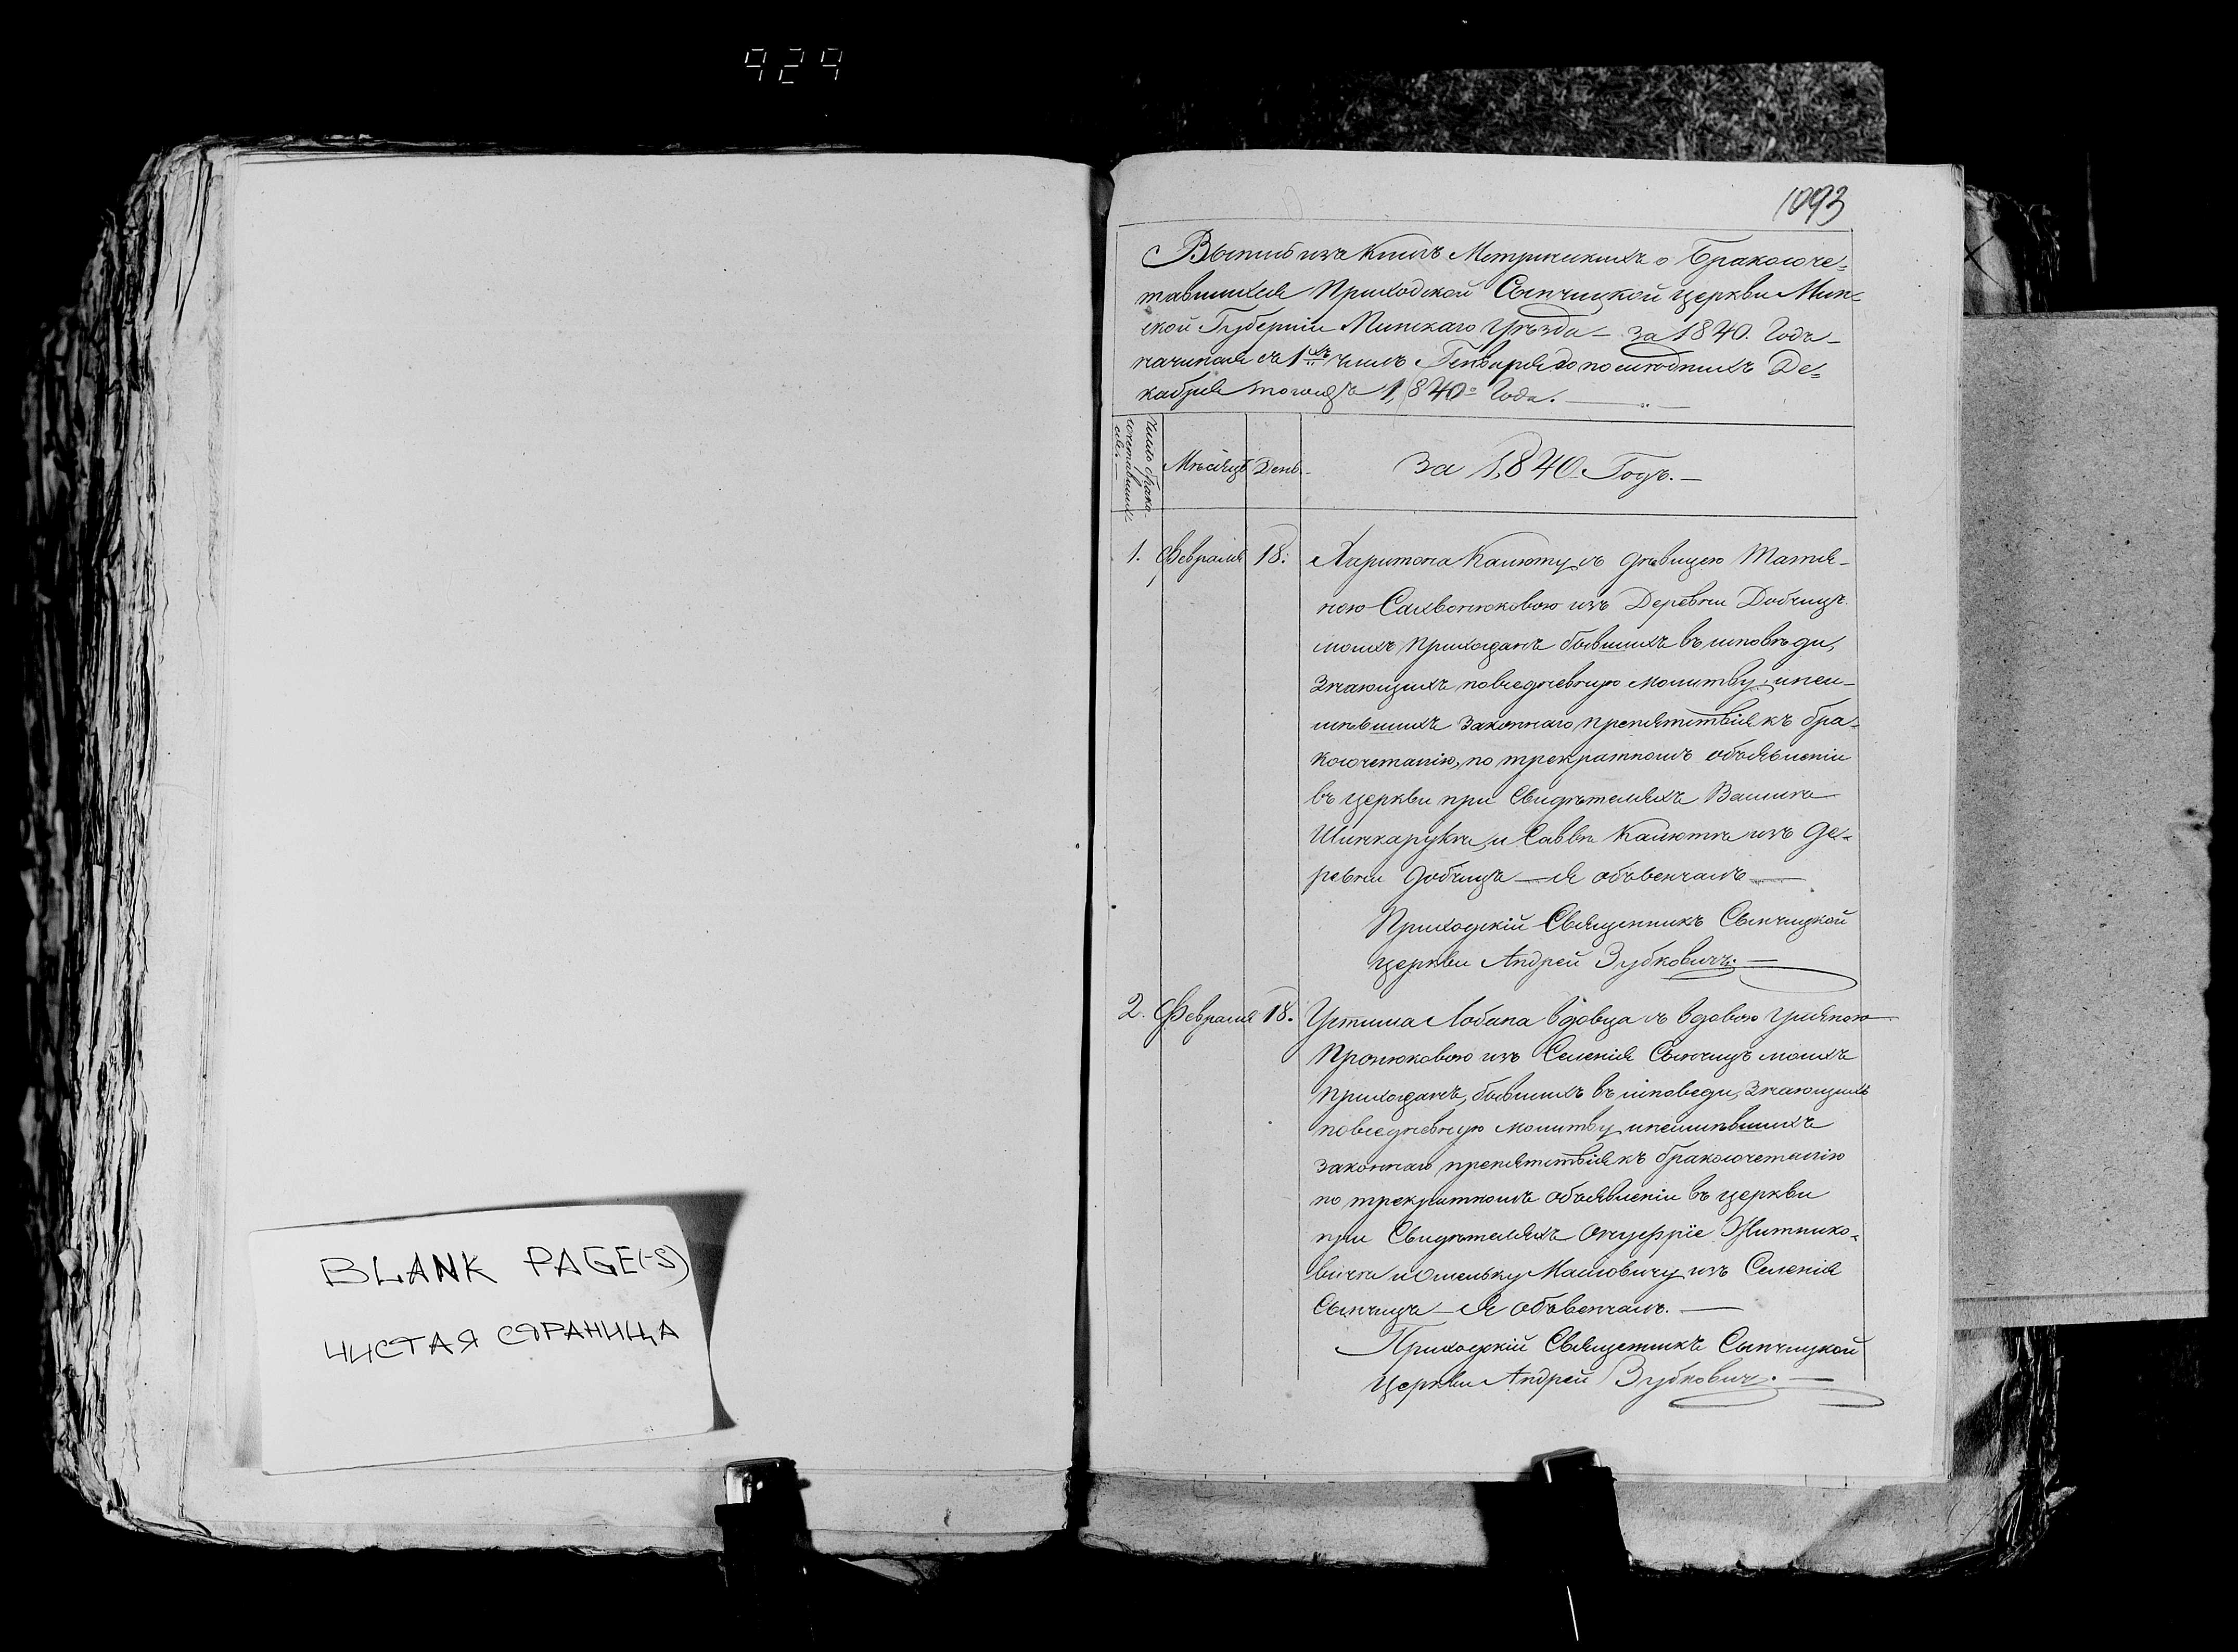 929
1093
Выпись изъ Книгъ Метрическихъ о Бракосоче-
тавшихся Приходской Сынчицкой церкви Мин-
ской Губерніи Пинскаго Уѣзда – за 1840. Годъ –
начиная съ 1хъ чиселъ Генваря до послѣднихъ Де-
кабря тогожъ 1,840о Года. —
Число брако-
сочетавших-
ся. —
Мѣсяцъ
День.
За 1,840 Годъ. —
1. Февраля 18. Харитона Калюту съ дѣвицею Татія-
ною Сахвонюковою изъ Деревни Добчицъ
моихъ прихожанъ бывшихъ въ исповѣди,
Знающихъ повседневную молитву, и неи-
мѣвшихъ законнаго препятствія къ бра-
косочетанію, по трекратномъ объявленіи
въ церкви при Свидѣтеляхъ Василѣ
Шинкарукѣ, и Саввѣ Калютѣ изъ де-
ревни добчицъ — я объвенчалъ —
Приходскій Священникъ Сынчицкой
церкви Андрей Зубковичъ. —
2. Февраля 18. Устима Лобана вдовца съ вдовою Уліяною
Пронюковою изъ Селенія Сынчицъ моихъ
прихожанъ, бывшихъ въ исповеди, Знающихъ
повседневную молитву и неимѣвшихъ
законнаго препятствія къ бракосочетанію
по трекратномъ объявленіи въ церкви
при Свидѣтеляхъ Онуфріе Житнико-
вичѣ и Омельку Масловичу изъ Селенія
Сынчицъ — Я объвенчалъ. —
Приходскій Священникъ Сынчицкой
Церкви Андрей Зубковичъ. —
BLANK PAGE(-S)
ЧИСТАЯ СТРАНИЦА